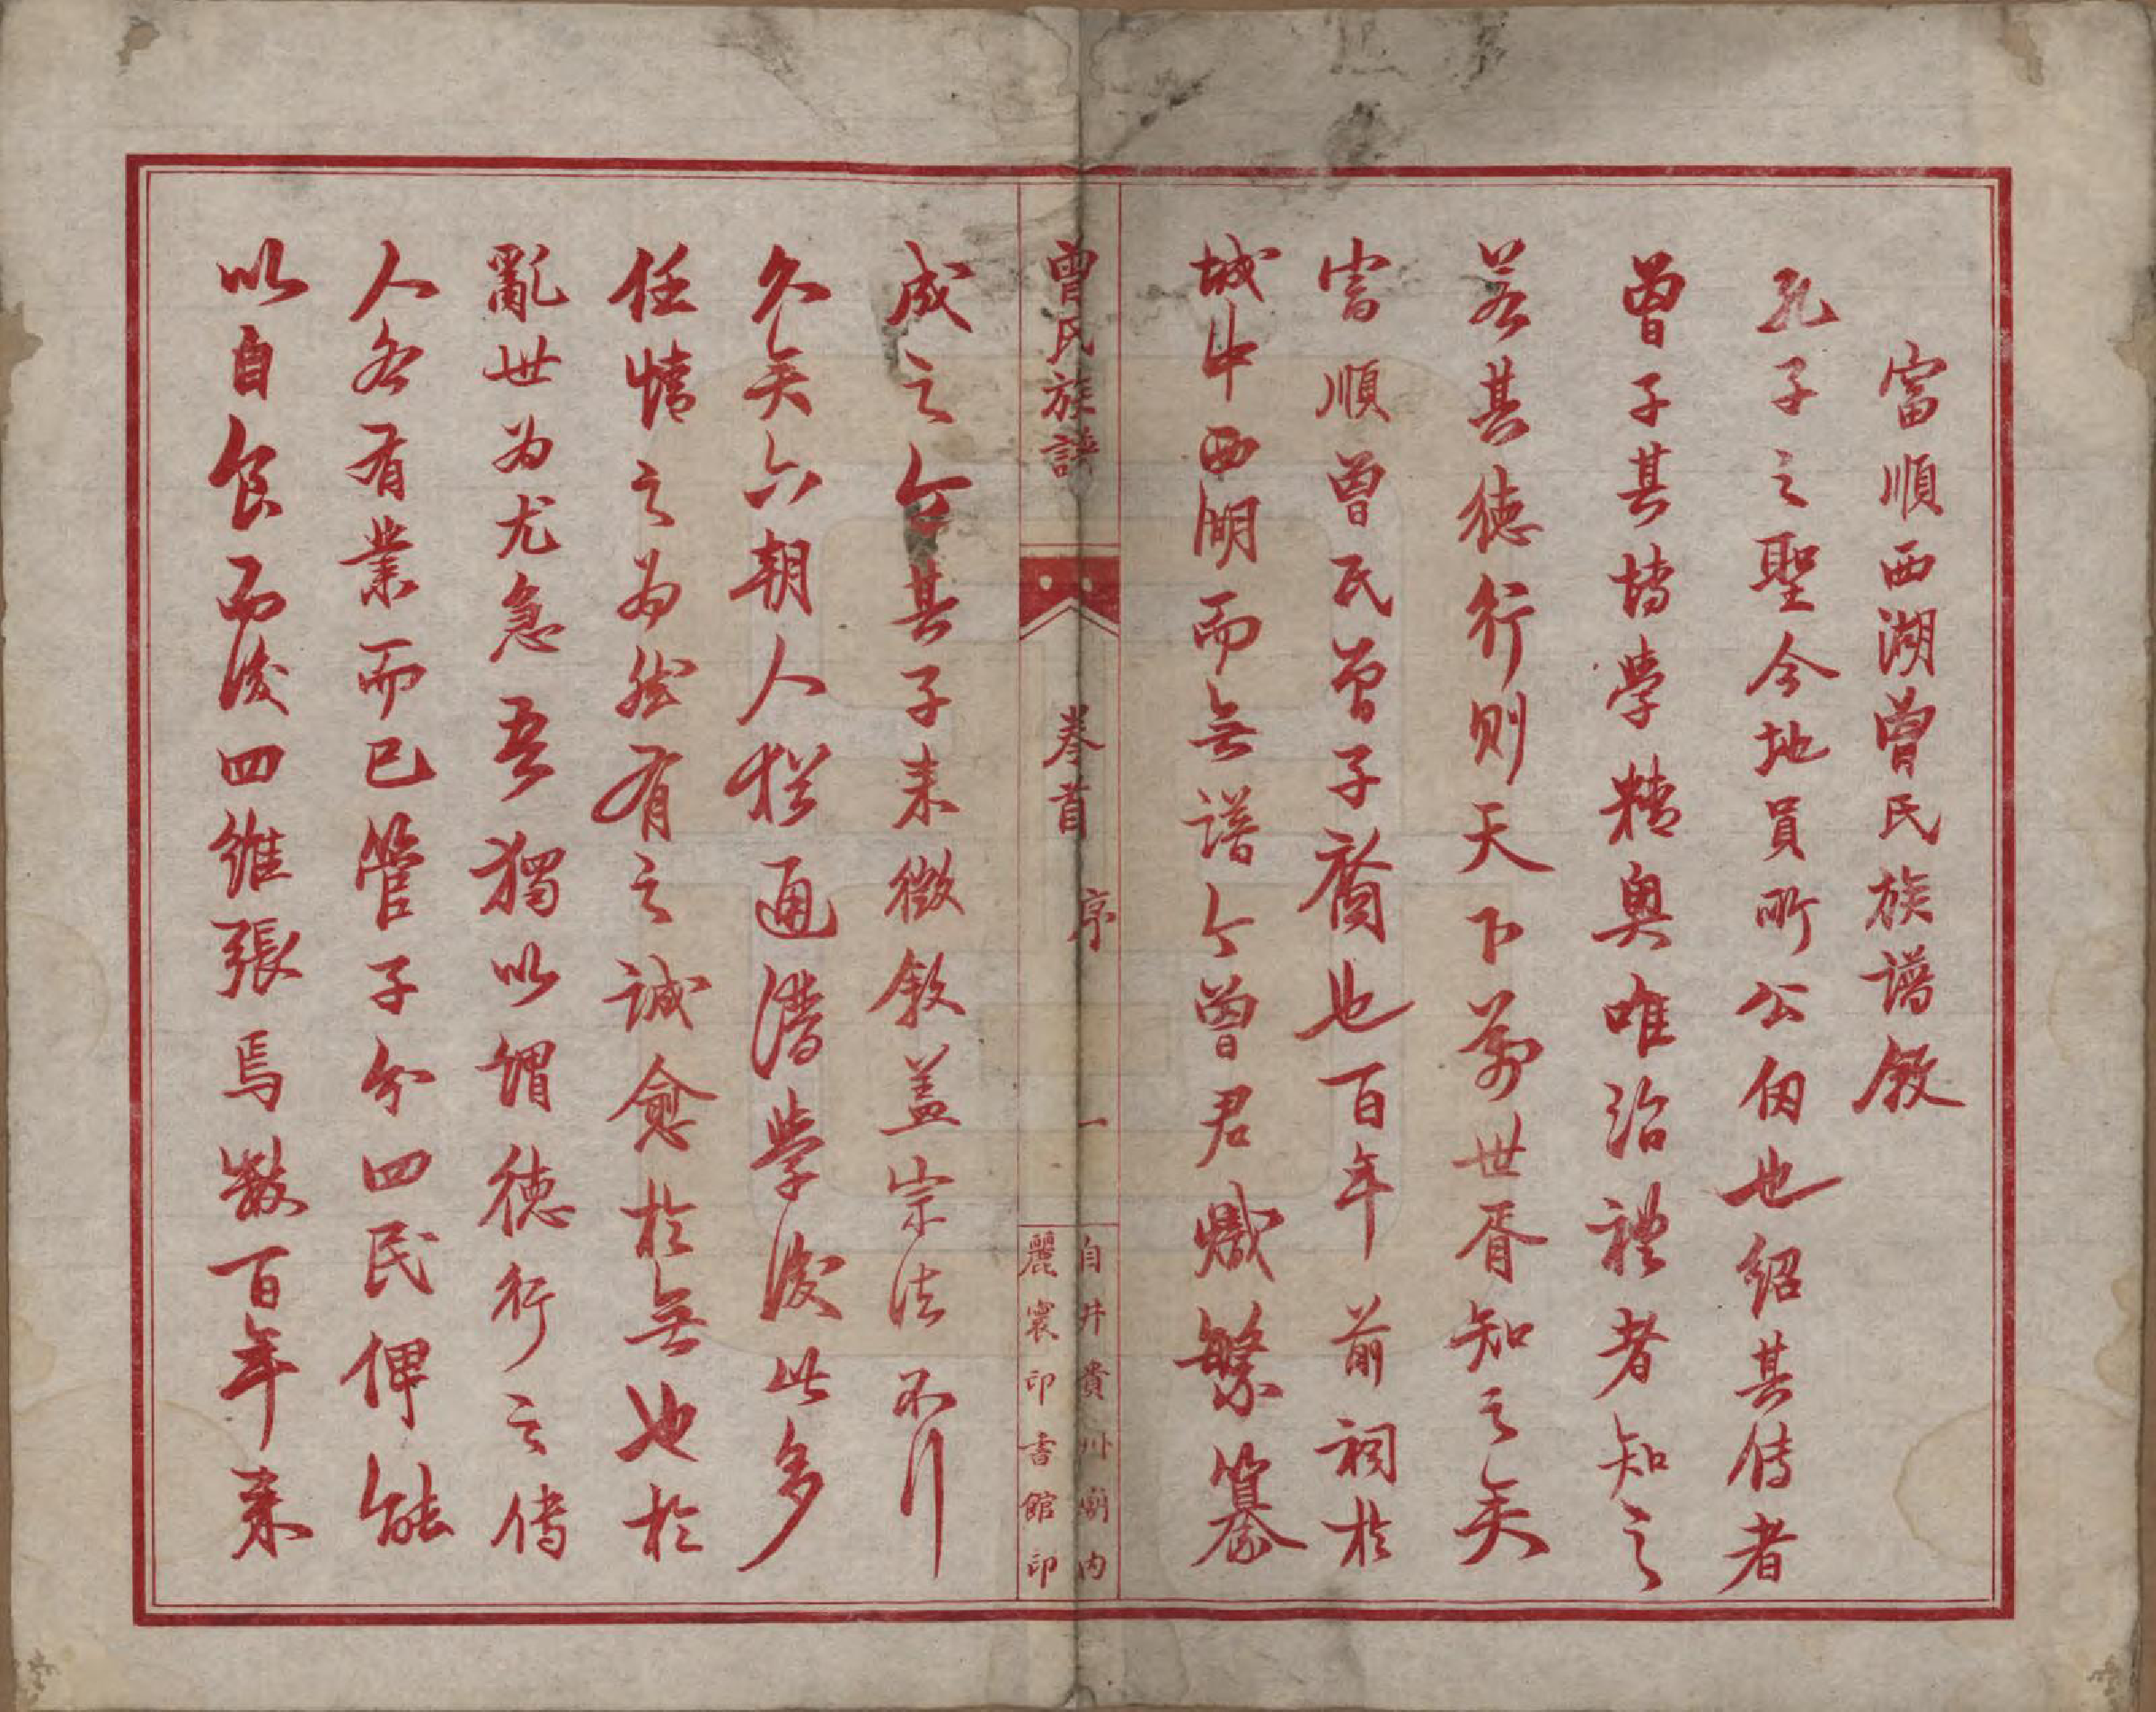 富順西湖曾氏族譜敘
孔子之聖今地員所公因也紹其傳者
曾子其博學精奧唯治禮者知之
若其德行則天下萬世胥知之矣
富順曾氏曾子裔也百年前祠於
城中西湖而無譜今曾君熾繁纂
曾氏族譜
卷首
序
一
自井貴州廟內
麗寰印書館印
成之令其子來徵敘蓋宗法不行
久矣六朝人猶通譜學後此多
任情之為然有之誠愈於無也於
亂世為尤急吾獨以謂德行之傳
人各有業而已管子分四民俾能
以自食而後四維張焉數百年來